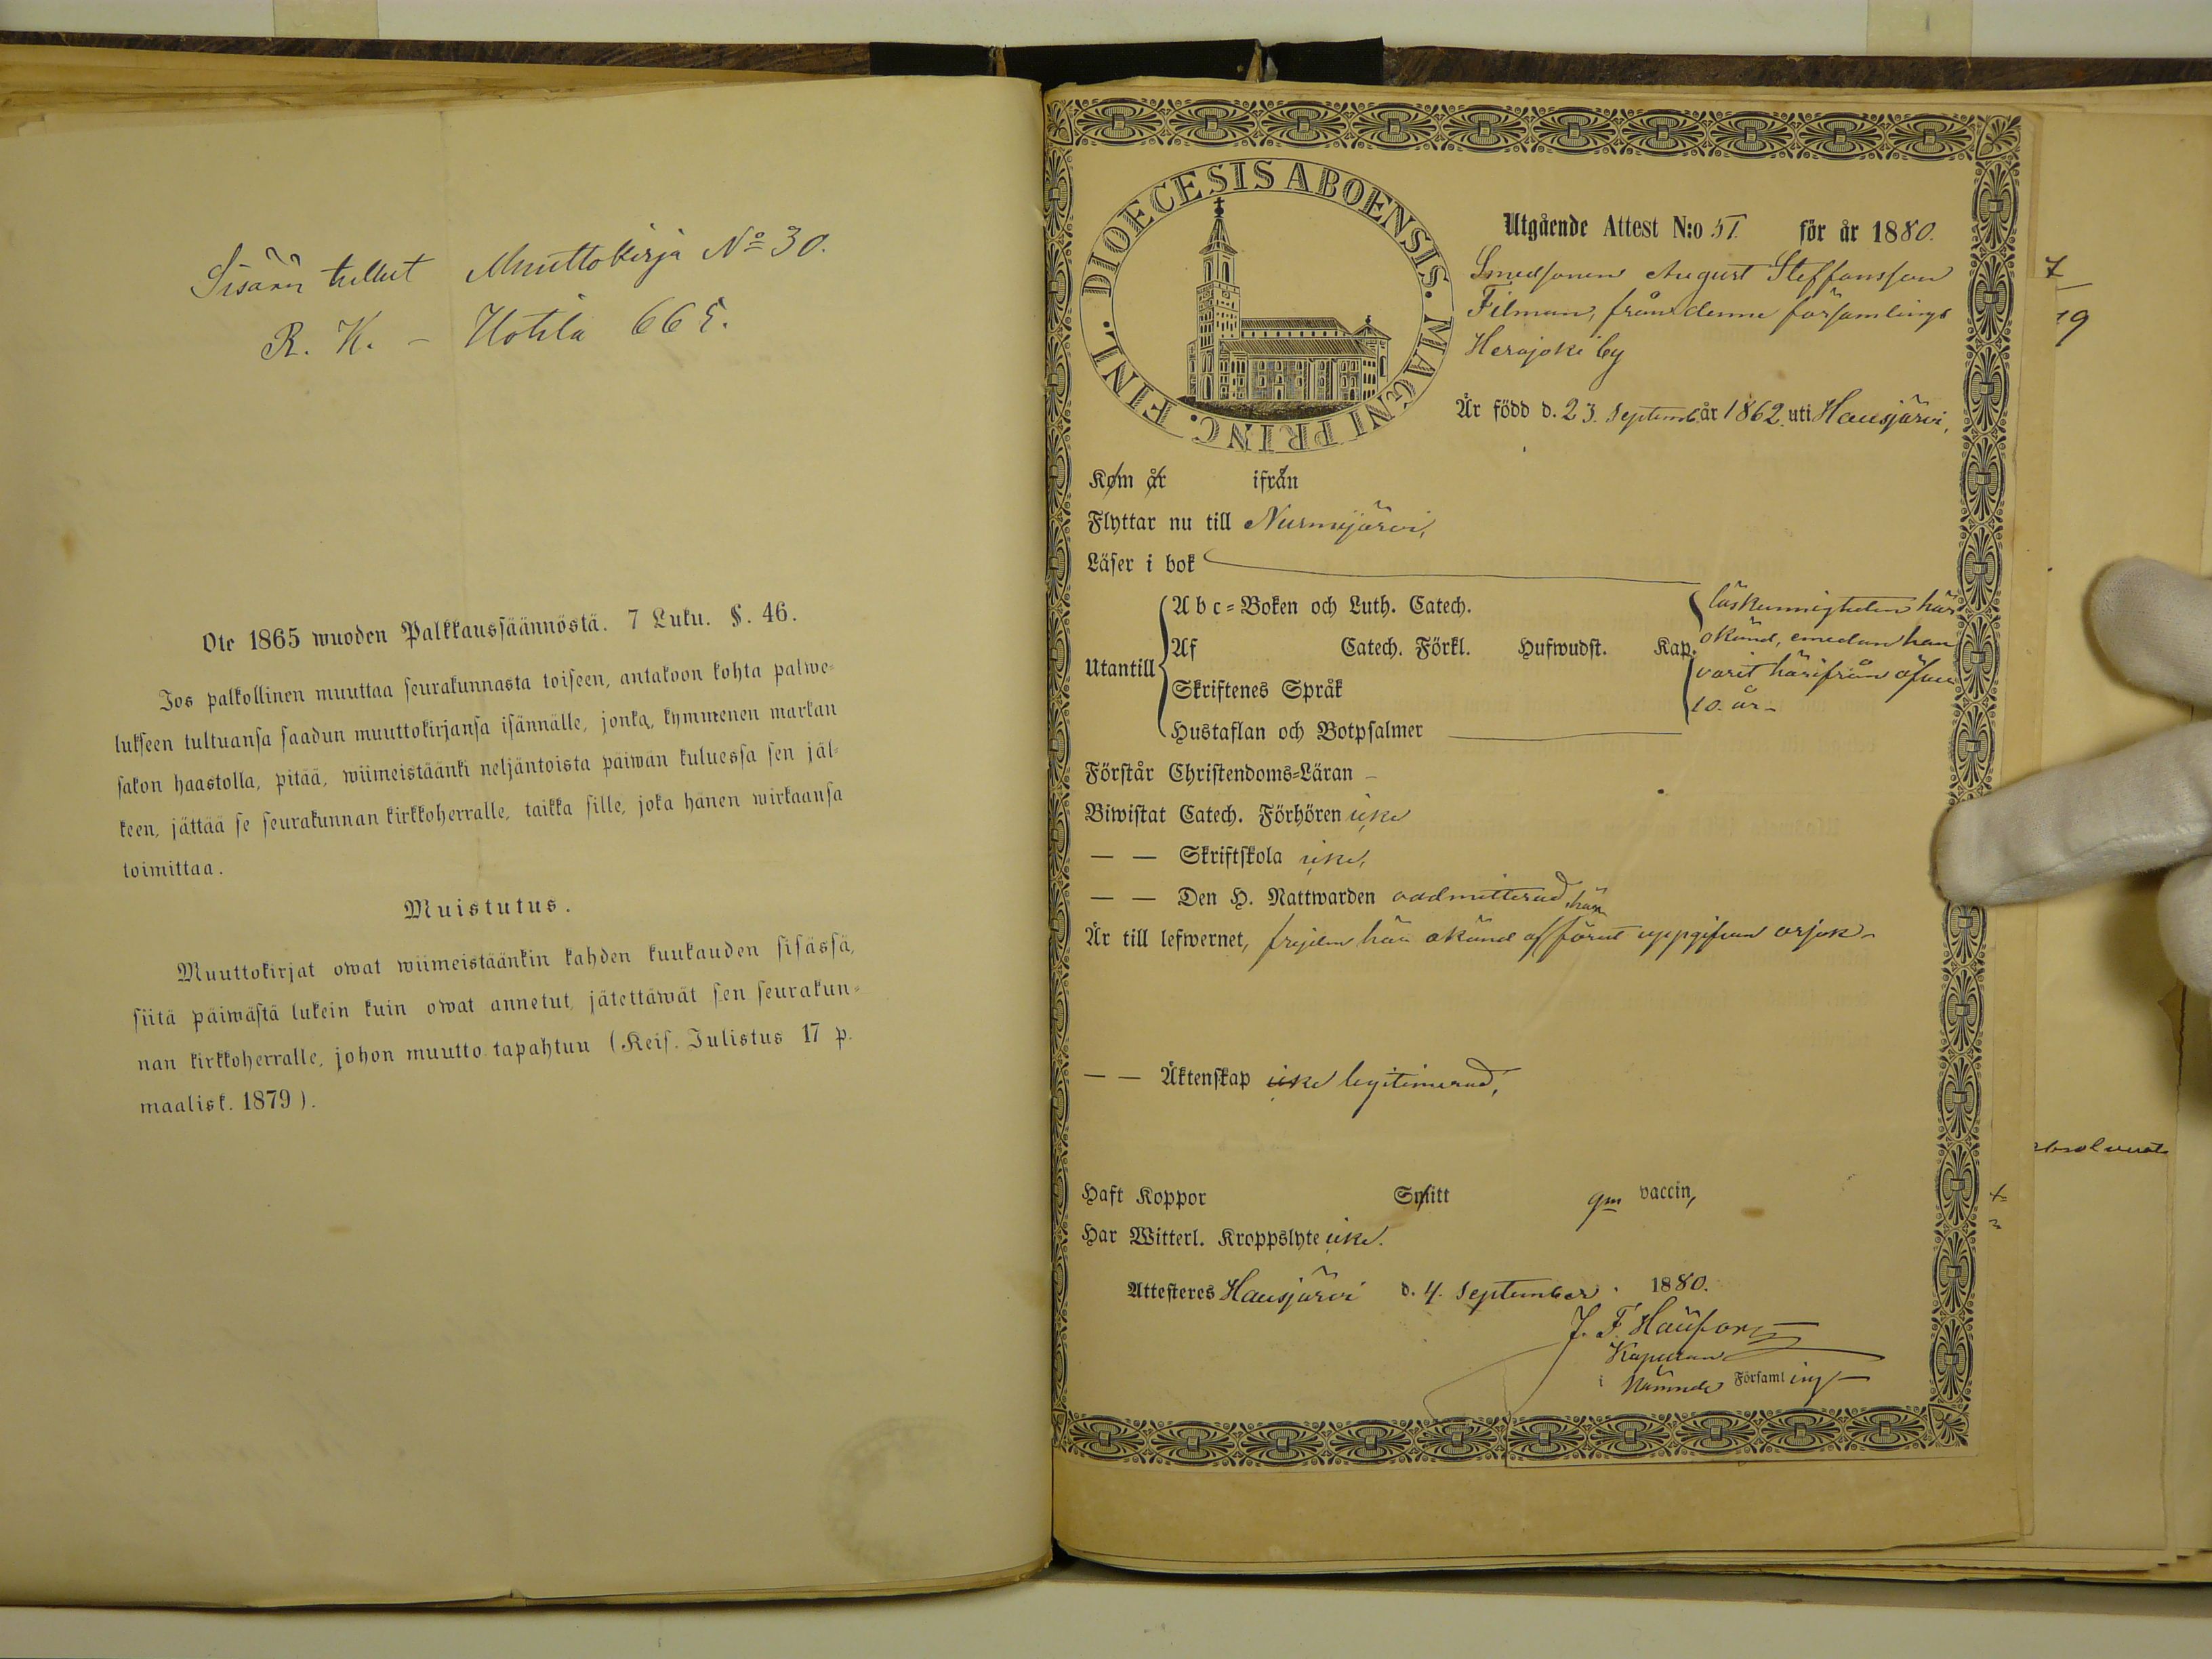 Sisään tullut Muuttokirja No 30.
R. K. – Uotila 665.
Ote 1865 wuoden Palkkaussäännöstä. 7 Luku. §. 46.
Jos palkollinen muuttaa seurakunnasta toiseen, antakoon kohta palwe-
lukseen tultuansa saadun muuttokirjansa isännälle, jonka, kymmenen markan
sakon haastolla, pitää, wiimeistäänki neljäntoista päiwän kuluessa sen jäl-
keen, jättää se seurakunnan kirkkoherralle, taikka sille, joka hänen wirkaansa
toimittaa.
Muistutus.
Muuttokirjat owat wiimeistäänkin kahden kuukauden sisässä,
siitä päiwästä lukein kuin owat annetut, jätettäwät sen seurakun-
nan kirkkoherralle, johon muutto tapahtuu (Keis. Julistus 17 p.
maalisk. 1879).
DIOECESIS ABOENSIS. MAGNI PRINC. FINL.
Utgående Attest N:o 51. för år 1880.
Smedsonen August Steffansson
Filman, från denne församlings
Herajoki by
Är född d. 23. Septemb. år 1862. uti Hausjärvi,
Kom år ifrån
Flyttar nu till Nurmijärvi,
Läser i bok
Utantill
A b c-Boken och Luth. Catech.
Af Catech. Förkl. Hufwudst. Kap.
Skriftenes Språk
Hustaflan och Botpsalmer
läskunnigheten här
okänd, emedan han
varit härifrån öfver
10. år –
Förstår Christendoms-Läran –
Biwistat Catech. Förhören icke
— — Skriftskola icke,
— — Den H. Nattwarden oadmitterad här
Är till lefwernet, frejden här okänd af förut uppgifven orsak –
— — Äktenskap icke legitimerad,
Haft Koppor Smitt gm vaccin,
Har Witterl. Kroppslyte icke.
Attesteres Hausjärvi d. 4. September. 1880.
J. F.
Kapellan
i Nämnde Församling
7
19